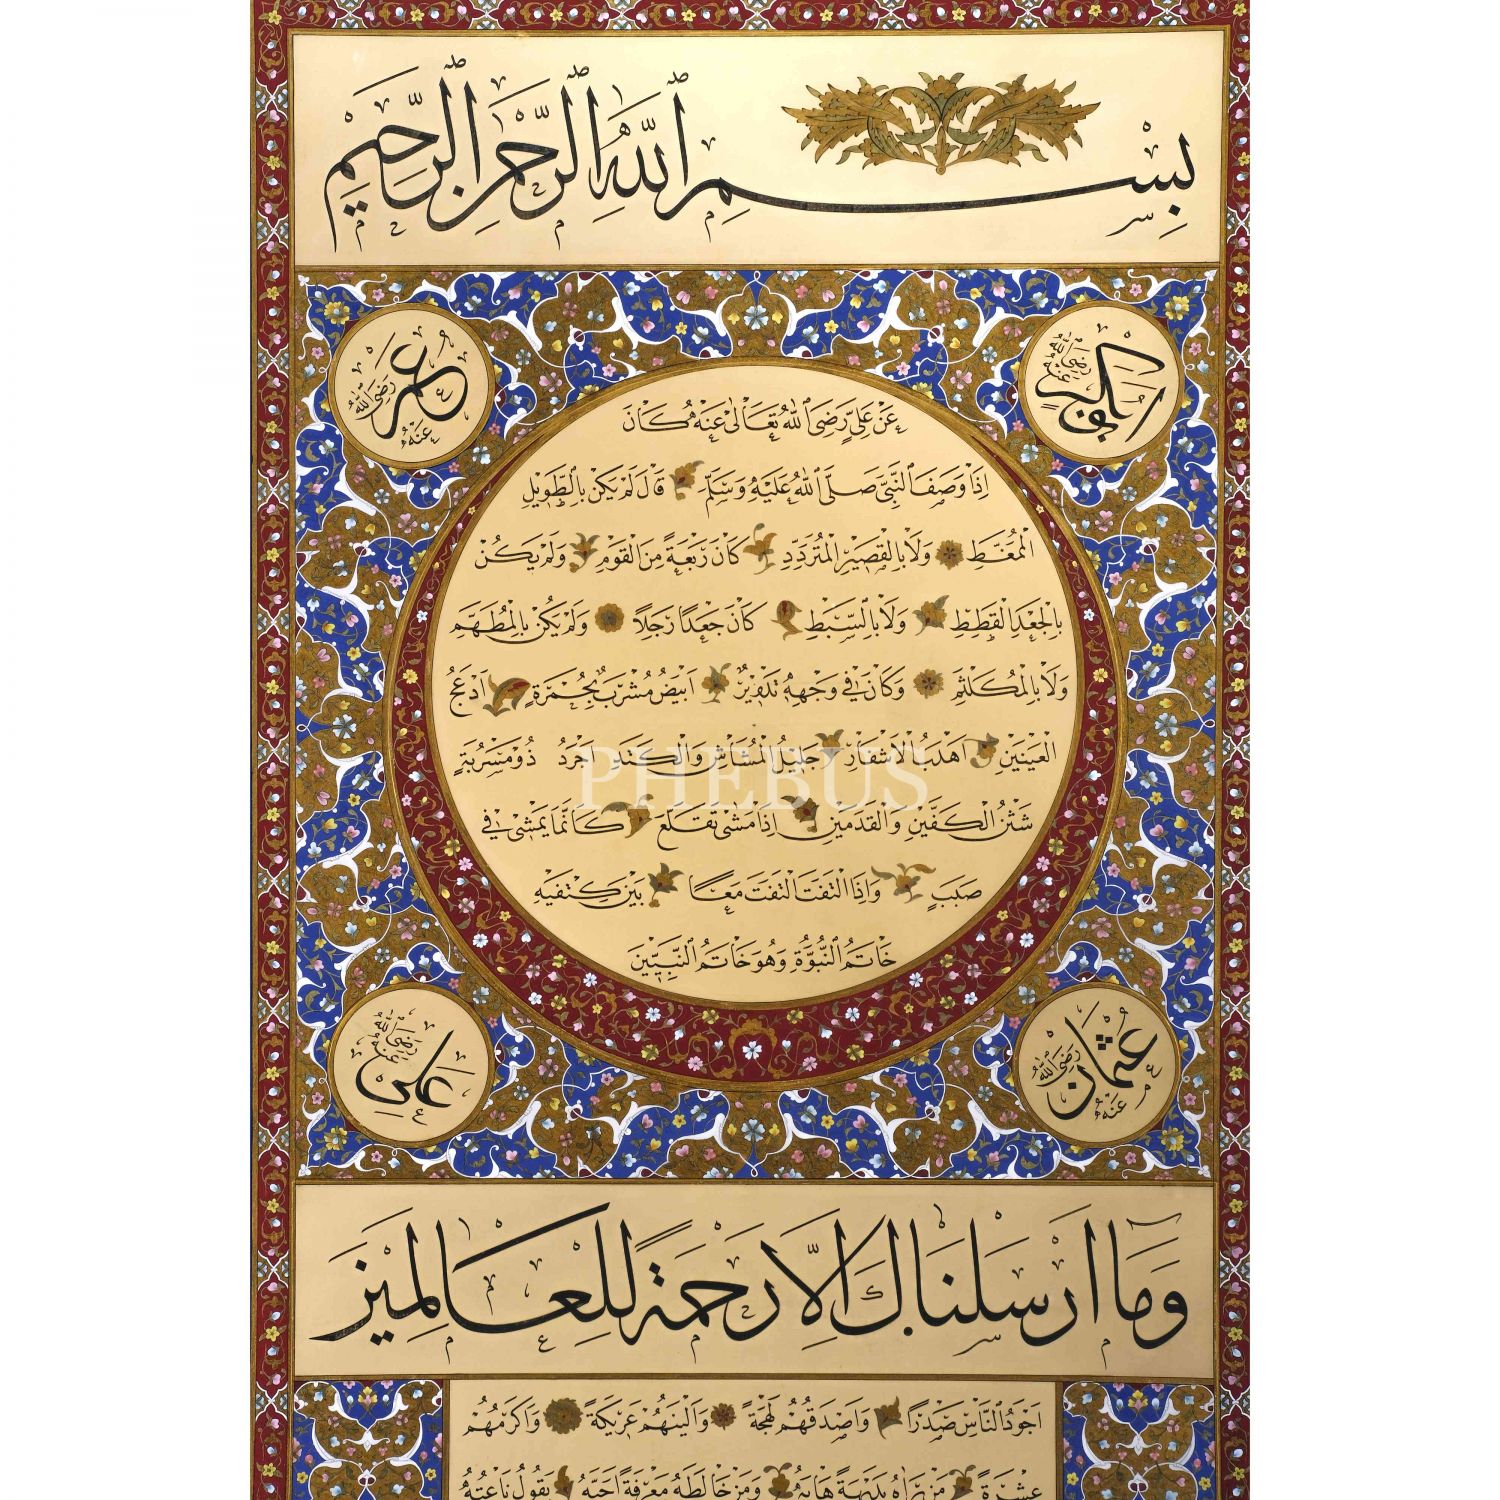 بِسْمِ اللهِ الرَّحْمٰنِ الرَّحِيمِ
ابو بكر رَضِيَ اللهُ عَنْهُ
عمر رَضِيَ اللهُ عَنْهُ
عَنْ عَلِيٍّ رَضِيَ اللهُ تَعَالٰى عَنْهُ كَانَ
اِذَا وَصَفَ النَّبِيَّ صَلَّى اللهُ عَلَيْهِ وَسَلَّمَ قَالَ لَمْ يَكُنْ بِالطَّوِيلِ
الْمُمَّغَطِ وَلَا بِالْقَصِيرِ الْمُتَرَدِّدِ كَانَ رَبْعَةً مِنَ الْقَوْمِ وَلَمْ يَكُنْ
بِالْجَعْدِ الْقَطِطِ وَلَا بِالسَّبْطِ كَانَ جَعْدًا رَجِلًا وَلَمْ يَكُنْ بِالْمُطَهَّمِ
وَلَا بِالْمُكَلْثَمِ وَكَانَ فِي وَجْهِهِ تَدْوِيرٌ اَبْيَضُ مُشْرَبٌ بِحُمْرَةٍ اَدْعَجُ
الْعَيْنَيْنِ اَهْدَبُ الْاَشْفَارِ جَلِيلُ الْمُشَاشِ وَالْكَتَدِ اَجْرَدُ ذُو مَسْرُبَةٍ
PHEBUS
شَثْنُ الْكَفَّيْنِ وَالْقَدَمَيْنِ اِذَا مَشٰى تَقَلَّعَ كَاَنَّمَا يَمْشِي فِي
صَبَبٍ وَاِذَا الْتَفَتَ الْتَفَتَ مَعًا بَيْنَ كَتِفَيْهِ
خَاتَمُ النُّبُوَّةِ وَهُوَ خَاتَمُ النَّبِيِّينَ
عثمان رَضِيَ اللهُ عَنْهُ
علي رَضِيَ اللهُ عَنْهُ
وَمَا اَرْسَلْنَاكَ اِلَّا رَحْمَةً لِلْعَالَمِينَ
اَجْوَدُ النَّاسِ صَدْرًا وَاَصْدَقُهُمْ لَهْجَةً وَاَلْيَنُهُمْ عَرِيكَةً وَاَكْرَمُهُمْ
عِشْرَةً مَنْ رَاٰهُ بَدِيهَةً هَابَهُ وَمَنْ خَالَطَهُ مَعْرِفَةً اَحَبَّهُ يَقُولُ نَاعِتُهُ